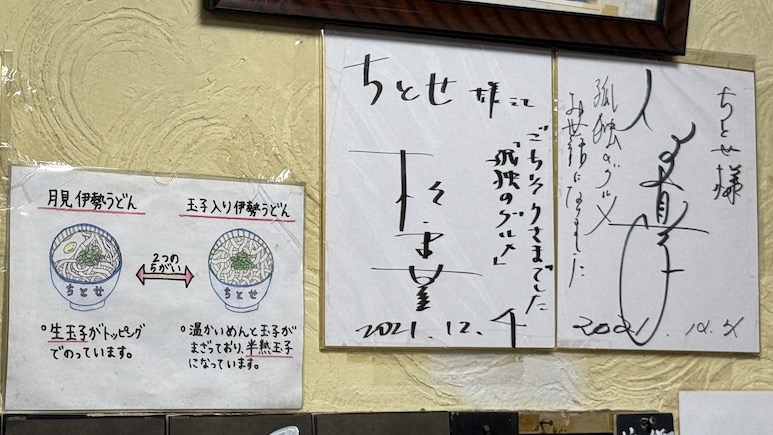 月見伊勢うどん
玉子入り伊勢うどん
2つの
ちがい
ちとせ
ちとせ
○生玉子がトッピング
でのっています。
○温かいめんと玉子が
まざっており、半熟玉子
になっています。
ちとせ 様
ごちそうさまでした
「孤独のグルメ」
2021.12.
ちとせ様
孤独のグルメ
お世話になりました
2021.